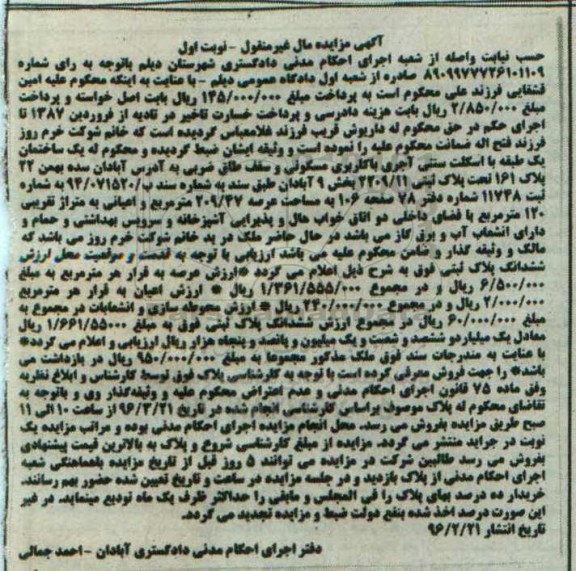 آگهی مزایده مال غیرمنقول - نوبت اول
حسب نیابت واصله از شعبه اجرای احکام مدنی دادگستری شهرستان دیلم باتوجه به رای شماره
۸۹۰۹۹۷۷۷۲۶۱۰۱۱۰۹ صادره از شعبه اول دادگاه عمومی دیلم - با عنایت به اینکه محکوم علیه امین
قشقایی فرزند علی محکوم است به پرداخت مبلغ ۱۴۵/۰۰۰/۰۰۰ ریال بابت اصل خواسته و پرداخت
مبلغ ۲/۸۵۰/۰۰۰ ریال بابت هزینه دادرسی و پرداخت خسارت تاخیر در تادیه از فروردین ۱۳۸۷ تا
اجرای حکم در حق محکوم له داریوش قریب فرزند غلامعباس گردیده است که خانم شوکت خرم روز
فرزند فتح اله ضمانت محکوم علیه را نموده است و وثیقه ایشان ضبط گردیده و محکوم له یک ساختمان
یک طبقه با اسکلت سنتی آجری باکاربری مسکونی و سقف طاق ضربی به آدرس آبادان سده بهمن ۲۲
پلاک ۱۶۱ تحت پلاک ثبتی ۲۲۰۷/۱۱بخش ۹ آبادان طبق سند به شماره سند ب/۹۴/۰۷۱۵۲۰ به شماره
ثبت ۱۱۷۴۸ شماره دفتر ۷۸ صفحه ۱۰۶ به مساحت عرصه ۲۰۹/۴۷ مترمربع و اعیانی به متراژ تقریبی
۱۲۰ مترمربع با فضای داخلی دو اتاق خواب هال و پذیرایی آشپزخانه و سرویس بهداشتی و حمام و
دارای انشعاب آب و برق گاز می باشد در حال حاضر ملک در ید خانم شوکت خرم روز می باشد که
مالک و وثیقه گذار و ضامن محکوم علیه می باشد ارزیابی با توجه به قدمت و موقعیت محل ارزش
ششدانگ پلاک ثبتی فوق به شرح ذیل اعلام می گردد *ارزش عرصه به قرار هر مترمربع به مبلغ
۶/۵۰۰/۰۰۰ ریال و در مجموع ۱/۳۶۱/۵۵۵/۰۰۰ ریال * ارزش اعیان به قرار هر مترمربع
۲/۰۰۰/۰۰۰ ریال و در مجموع ۲۴۰/۰۰۰/۰۰۰ ریال * ارزش محوطه سازی و انشعابات در مجموع به
مبلغ ۶۰/۰۰۰/۰۰۰ ریال در مجموع ارزش ششدانگ پلاک ثبتی فوق به مبلغ ۱/۶۶۱/۵۵۰۰۰ ریال
معادل یک میلیاردو ششصد و شصت و یک میلیون و پانصد و پنجاه هزار ریال ارزیابی و اعلام می گردد*
با عنایت به مندرجات سند فوق ملک مذکور مجموعا به مبلغ ۹۵۰/۰۰۰/۰۰۰ ریال در بازداشت می
باشد* را جهت فروش معرفی کرده است با توجه به کارشناسی پلاک فوق توسط کارشناس و ابلاغ نظریه
وفق ماده ۷۵ قانون اجرای احکام مدنی و عدم اعتراض محکوم علیه و وثیقه‌گذار وی و باتوجه به
تقاضای محکوم له پلاک موصوف براساس کارشناسی انجام شده در تاریخ ۹۶/۳/۲۱ از ساعت ۱۰ الی ۱۱
صبح طریق مزایده بفروش می رسد. محل انجام مزایده اجرای احکام مدنی بوده و مراتب مزایده یک
نوبت در جراید منتشر می گردد. مزایده از مبلغ کارشناسی شروع و پلاک به بالاترین قیمت پیشنهادی
بفروش می رسد طالبین شرکت در مزایده می توانند ۵ روز قبل از تاریخ مزایده باهماهنگی شعبه
اجرای احکام مدنی از پلاک بازدید و در جلسه مزایده در ساعت و تاریخ تعیین شده حضور بهم رسانند.
خریدار ده درصد بهای پلاک را فی المجلس و مابقی را حداکثر ظرف یک ماه تودیع مینماید. در غیر
این صورت درصد اخذ شده بنفع دولت ضبط و مزایده تجدید می گردد.
تاریخ انتشار ۹۶/۲/۲۱
دفتر اجرای احکام مدنی دادگستری آبادان - احمد جمالی